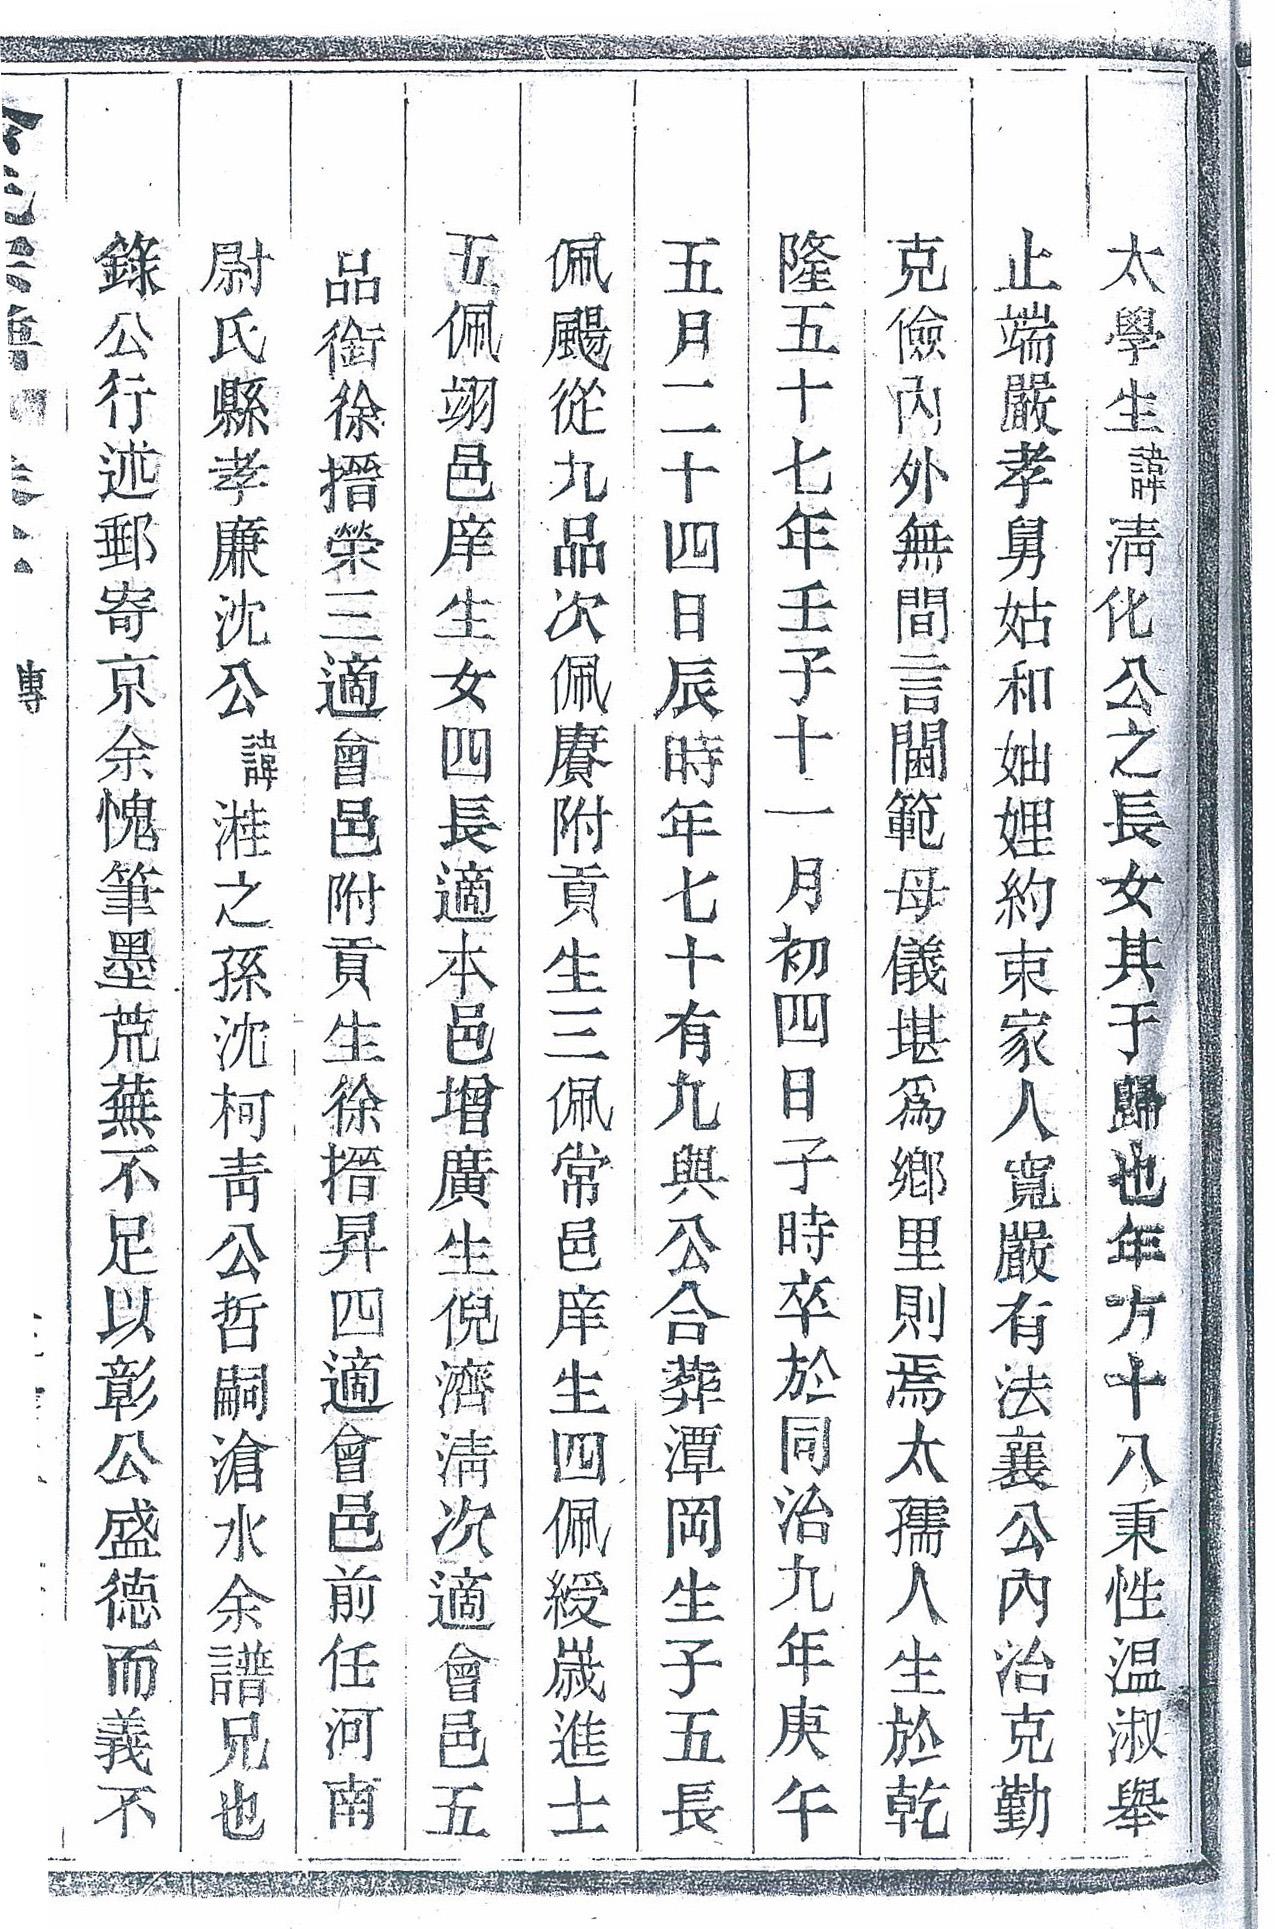 太學生諱淸化公之長女其于歸也年方十八秉性温淑舉
止端嚴孝舅姑和妯娌約束家人寬嚴有法襄公內治克勤
克儉內外無間言閫範母儀堪爲鄉里則焉太孺人生於乾
隆五十七年壬子十一月初四日子時卒於同治九年庚午
五月二十四日辰時年七十有九與公合葬潭岡生子五長
佩颺從九品次佩賡附貢生三佩常邑庠生四佩綬歲進士
五佩翊邑庠生女四長適本邑增廣生倪濟淸次適會邑五
品銜徐搢榮三適會邑附貢生徐搢昇四適會邑前任河南
尉氏縣孝廉沈公諱漼之孫沈柯靑公哲嗣滄水余譜兄也
錄公行述郵寄京余愧筆墨荒蕪不足以彰公盛德而義不
傳